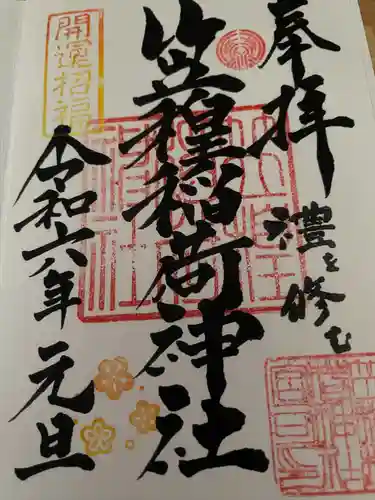 奉拝
禮を修む
笠䅣稲荷神社
令和六年元旦
開運招福